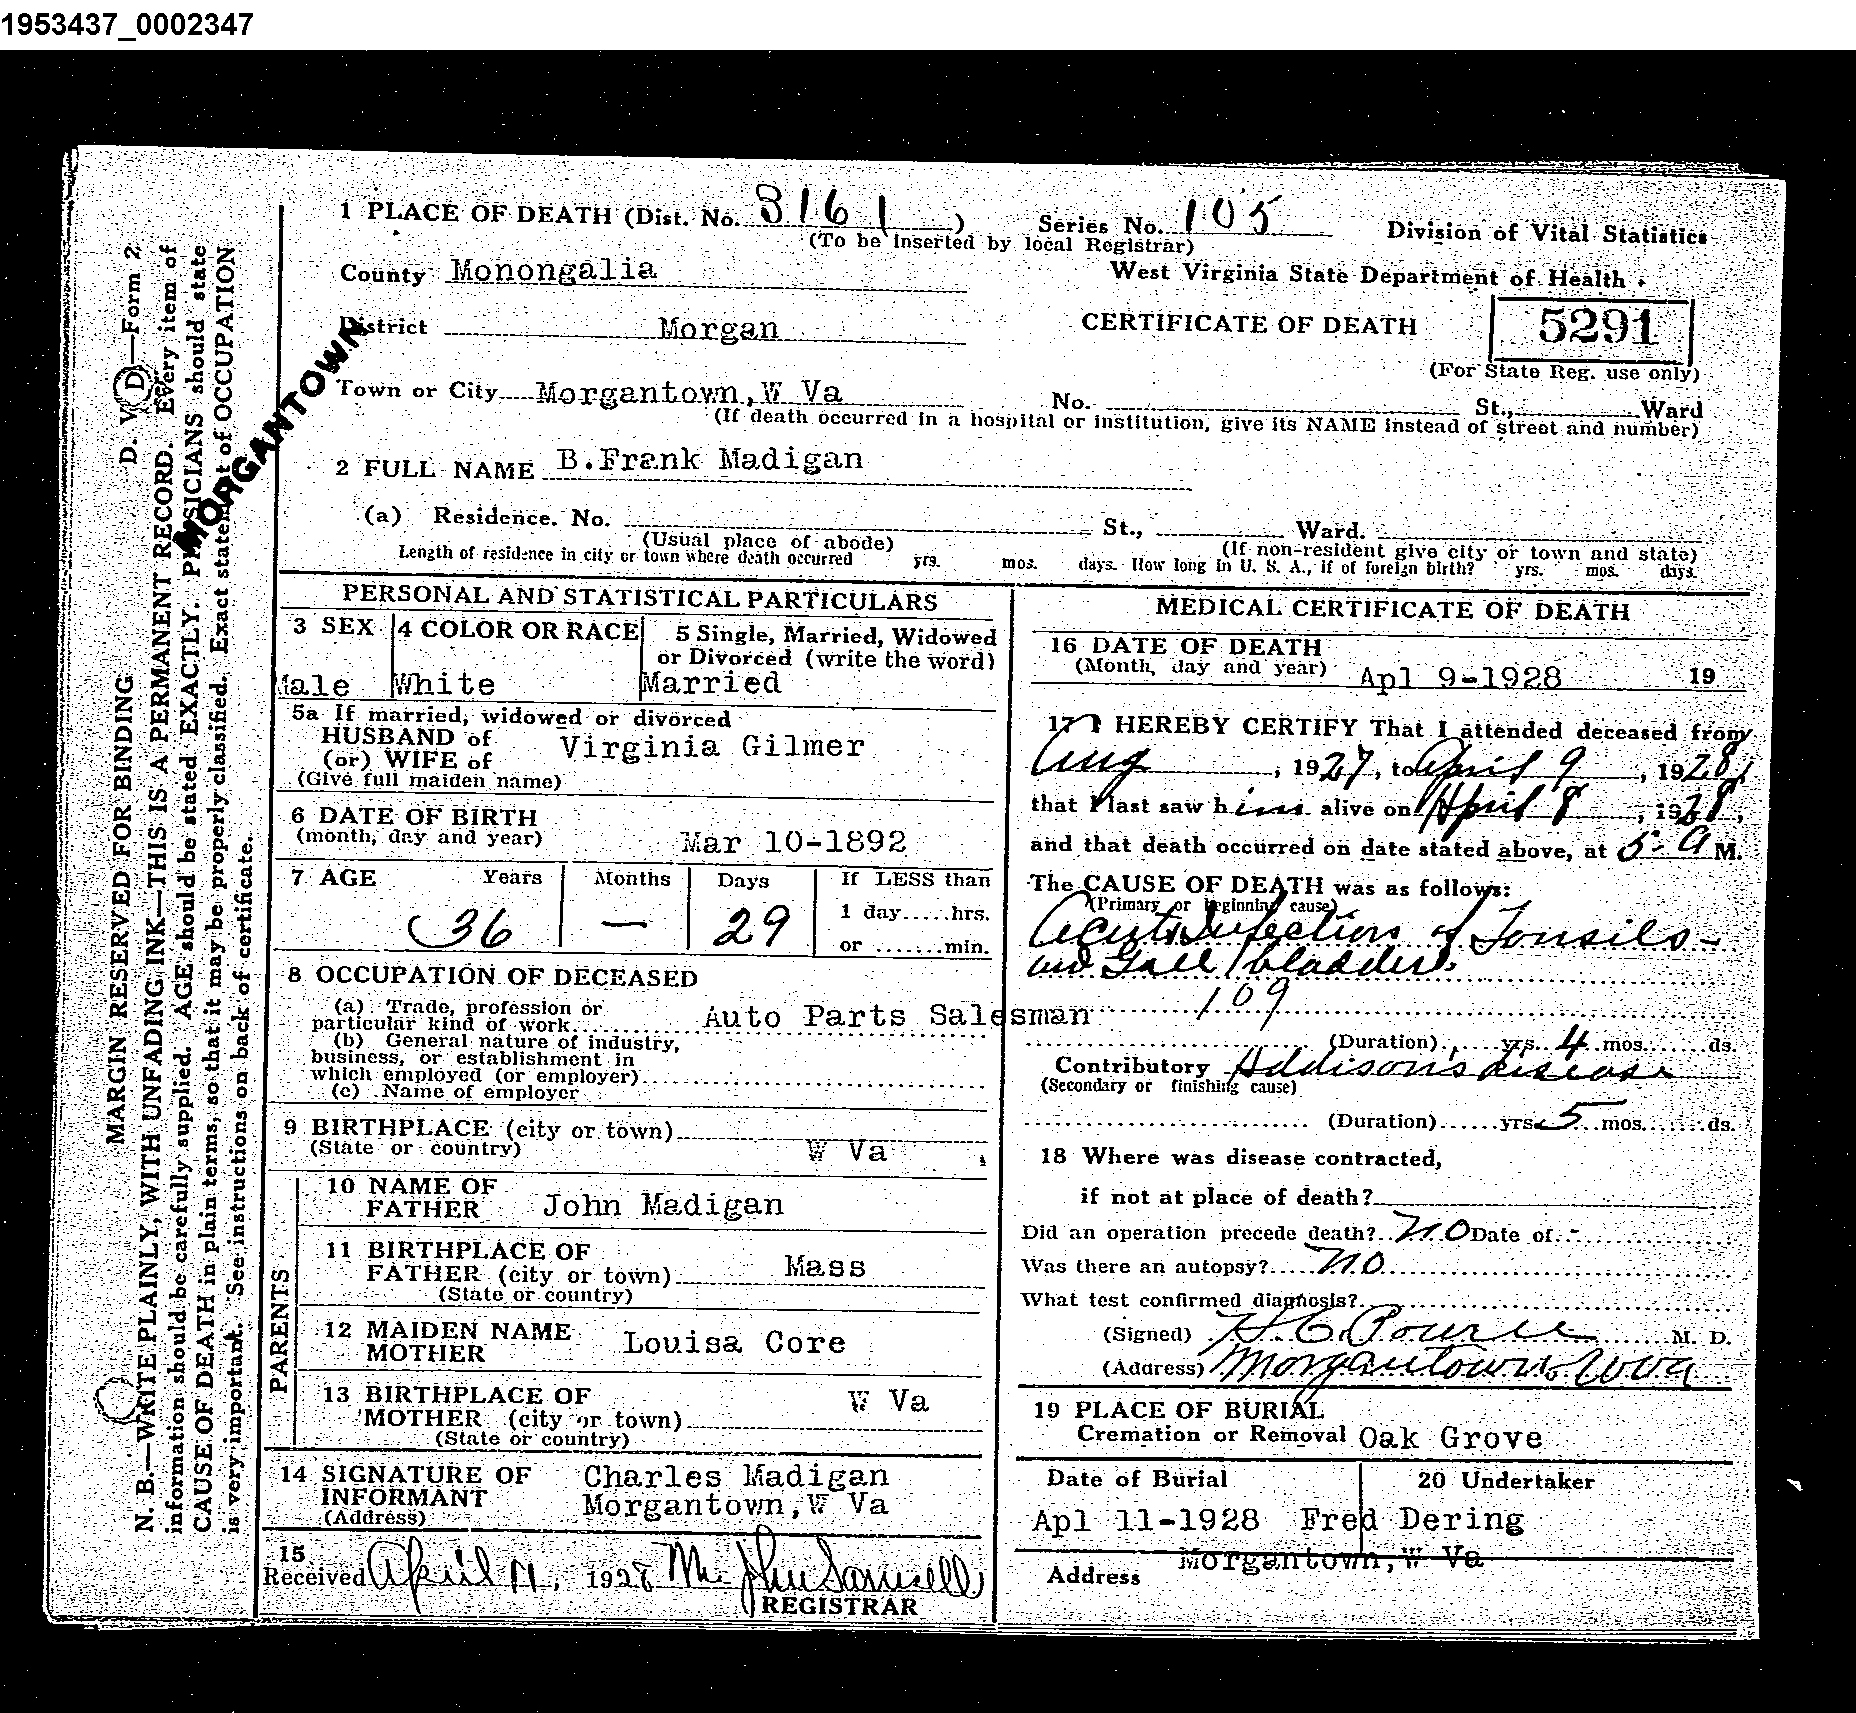 1953437_0002347
1 PLACE OF DEATH (Dist. No. 3161) Series No. 105 Division of Vital Statistics
(To be inserted by local Registrar)
County Monongalia West Virginia State Department of Health
District Morgan CERTIFICATE OF DEATH 5291
(For State Reg. use only)
Town or City Morgantown, W Va No. St., Ward
(If death occurred in a hospital or institution, give its NAME instead of street and number)
MORGANTOWN
2 FULL NAME B. Frank Madigan
(a) Residence. No. St., Ward.
(Usual place of abode) (If non-resident give city or town and state)
Length of residence in city or town where death occurred yrs. mos. days. How long in U. S. A., if of foreign birth? yrs. mos. days.
PERSONAL AND STATISTICAL PARTICULARS
3 SEX 4 COLOR OR RACE 5 Single, Married, Widowed
or Divorced (write the word)
Male White Married
5a If married, widowed or divorced
HUSBAND of
(or) WIFE of Virginia Gilmer
(Give full maiden name)
6 DATE OF BIRTH
(month, day and year) Mar 10-1892
7 AGE Years Months Days If LESS than
1 day.....hrs.
36 — 29
or .......min.
8 OCCUPATION OF DECEASED
(a) Trade, profession or
particular kind of work Auto Parts Salesman
(b) General nature of industry,
business, or establishment in
which employed (or employer)
(c) Name of employer
9 BIRTHPLACE (city or town)
(State or country) W Va
PARENTS
10 NAME OF
FATHER John Madigan
11 BIRTHPLACE OF
FATHER (city or town) Mass
(State or country)
12 MAIDEN NAME
MOTHER Louisa Core
13 BIRTHPLACE OF
MOTHER (city or town) W Va
(State or country)
14 SIGNATURE OF
INFORMANT Charles Madigan
(Address) Morgantown, W Va
15
Received April 11, 1928
REGISTRAR
MEDICAL CERTIFICATE OF DEATH
16 DATE OF DEATH
(Month, day and year) Apl 9-1928 19
17 I HEREBY CERTIFY That I attended deceased from
Aug, 1927, to April 9, 1928,
that I last saw him alive on April 8, 1928,
and that death occurred on date stated above, at 5- A M.
The CAUSE OF DEATH was as follows:
(Primary or beginning cause)
Acute Infection of Tonsils -
and Gall bladder.
109
(Duration) yrs. 4 mos. ds.
Contributory Addison's disease
(Secondary or finishing cause)
(Duration) yrs. 5 mos. ds.
18 Where was disease contracted,
if not at place of death?
Did an operation precede death? No Date of -
Was there an autopsy? No
What test confirmed diagnosis?
(Signed) M. D.
(Address) Morgantown W Va
19 PLACE OF BURIAL
Cremation or Removal Oak Grove
Date of Burial 20 Undertaker
Apl 11-1928 Fred Dering
Morgantown, W Va
Address
D. V. D—Form 2
MARGIN RESERVED FOR BINDING
N. B.—WRITE PLAINLY, WITH UNFADING INK—THIS IS A PERMANENT RECORD. Every item of
information should be carefully supplied. AGE should be stated EXACTLY. PHYSICIANS should state
CAUSE OF DEATH in plain terms, so that it may be properly classified. Exact statement of OCCUPATION
is very important. See instructions on back of certificate.